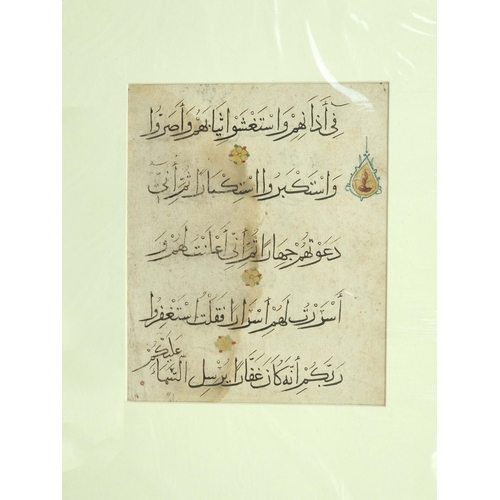 فِي أَذَانِهِمْ وَاسْتَغْشَوْا ثِيَابَهُمْ وَأَصَرُّوا
وَاسْتَكْبَرُوا اسْتِكْبَارًا ثُمَّ إِنِّي
دَعَوْتُهُمْ جِهَارًا ثُمَّ إِنِّي أَعْلَنْتُ لَهُمْ وَ
أَسْرَرْتُ لَهُمْ أَسْرَارًا فَقُلْتُ اسْتَغْفِرُوا
رَبَّكُمْ أَنَّهُ كَانَ غَفَّارًا يُرْسِلِ السَّمَاءَ عَلَيْكُمْ